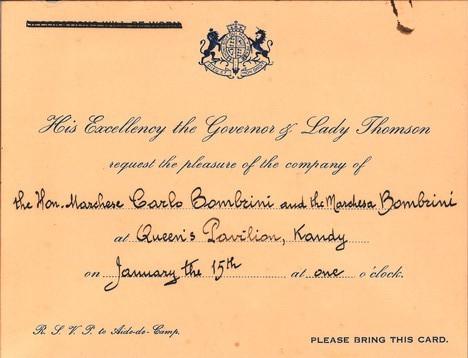 His Excellency the Governor & Lady Thomson
request the pleasure of the company of
the Hon. Marchese Carlo Bombrini and the Marchesa Bombrini
at Queen's Pavilion, Kandy
on January the 15th at one o'clock.
R. S. V. P. to Aide-de-Camp.
PLEASE BRING THIS CARD.